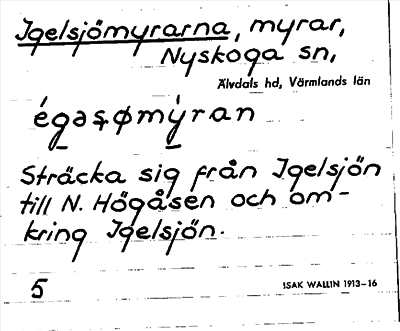 Igelsjömyrarna, myrar,
Nyskoga sn,
Älvdals hd, Värmlands län
Sträcka sig från Igelsjön
till N. Högåsen och om-
kring Igelsjön.
5
ISAK WALLIN 1913-16